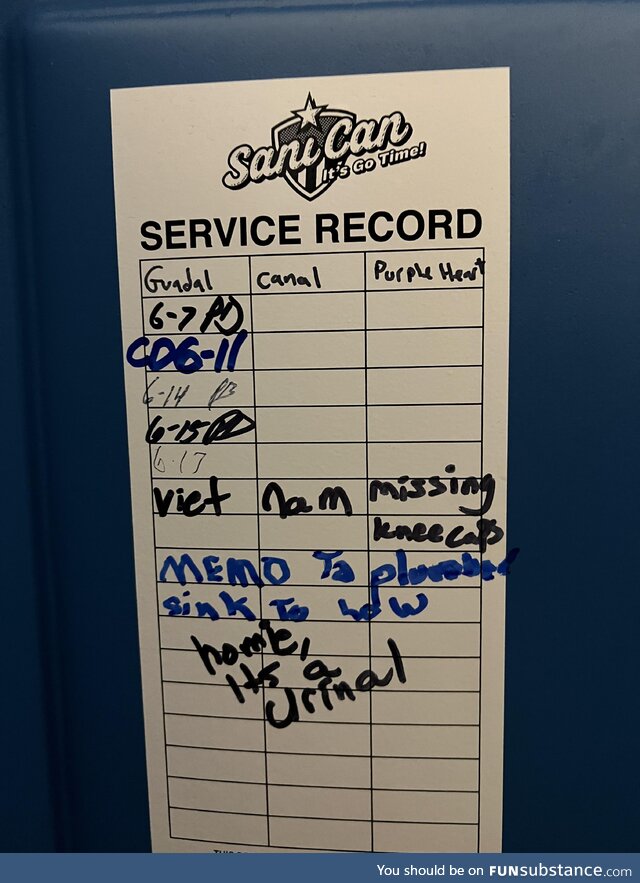 Sani Can
It's Go Time!
SERVICE RECORD
Guadal Canal Purple Heart
6-7
CD6-11
6-14
6-15
6-17
Viet Nam missing
kneecaps
MEMO To plumber
sink To low
homie,
its a
urinal
You should be on FUNsubstance.com